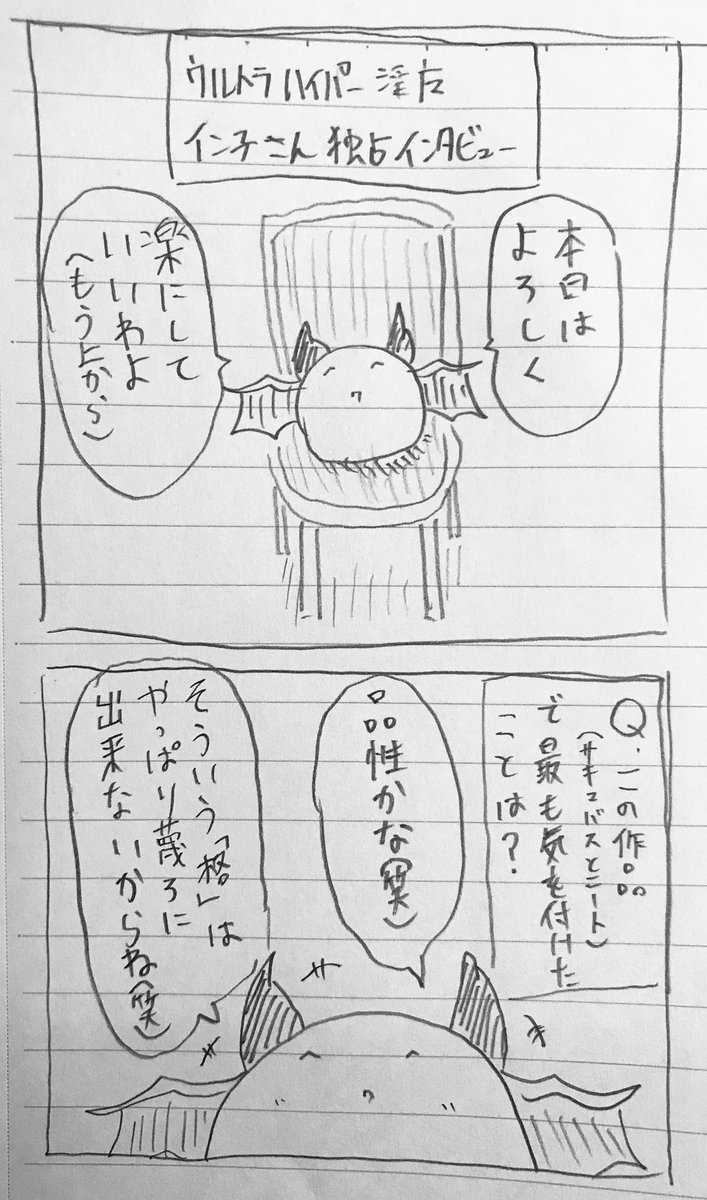 ウルトラハイパー淫乱
イン子さん独占インタビュー
本日は
よろしく
楽にして
いいわよ
(もう上から)
Q.この作品
(サキュバスとニート)
で最も気を付けた
ことは?
品性かな(笑)
そういう「格」は
やっぱり蔑ろに
出来ないからね(笑)